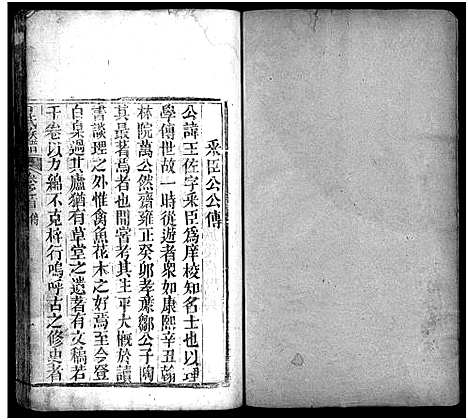 采臣公公傳
公諱王佐字采臣為庠校知名士也以理
學傳世故一時從遊者眾如康熙辛丑翰
林院萬公然齋雍正癸卯孝廉鄒公子陶
其最著焉者也間嘗考其生平大概於讀
書談理之外惟禽魚花木之好焉至今登
白臬過其廬猶有草堂之遺著有文稿若
干卷以力綿不克梓行嗚呼古之修史者